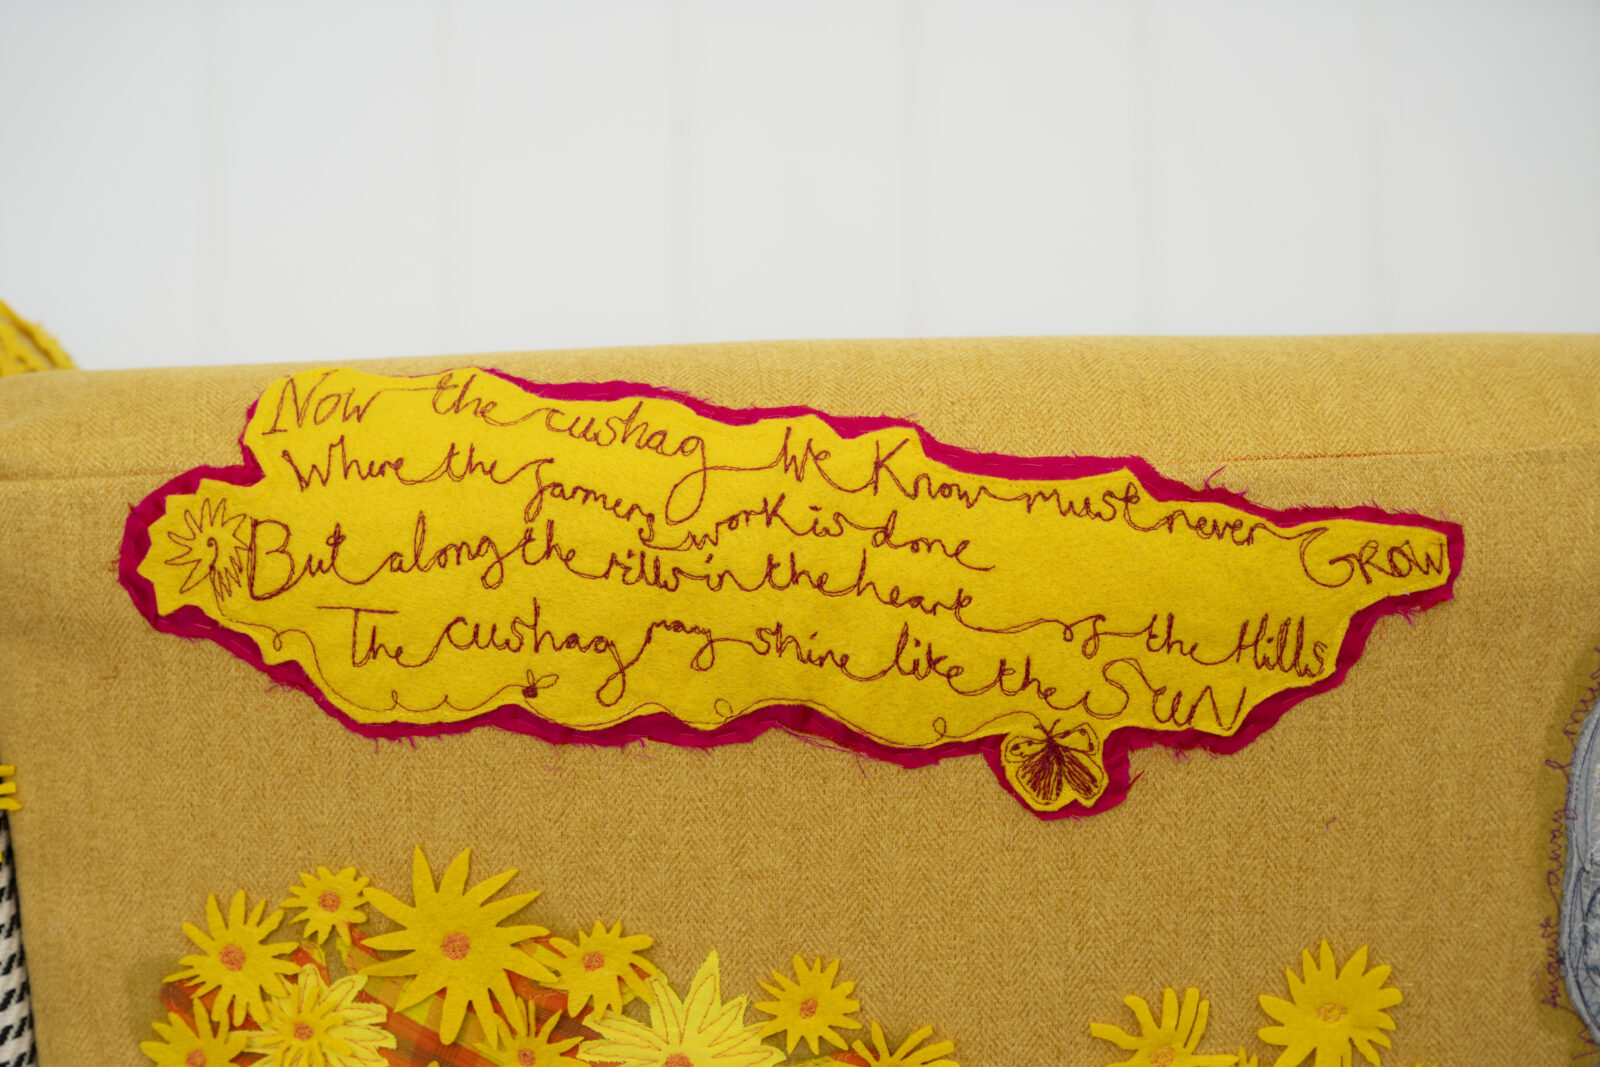 Now the cushag We Know must never GROW
Where the farmers work is done
But along the rills in the heart of the Hills
The cushag may shine like the SUN
August away